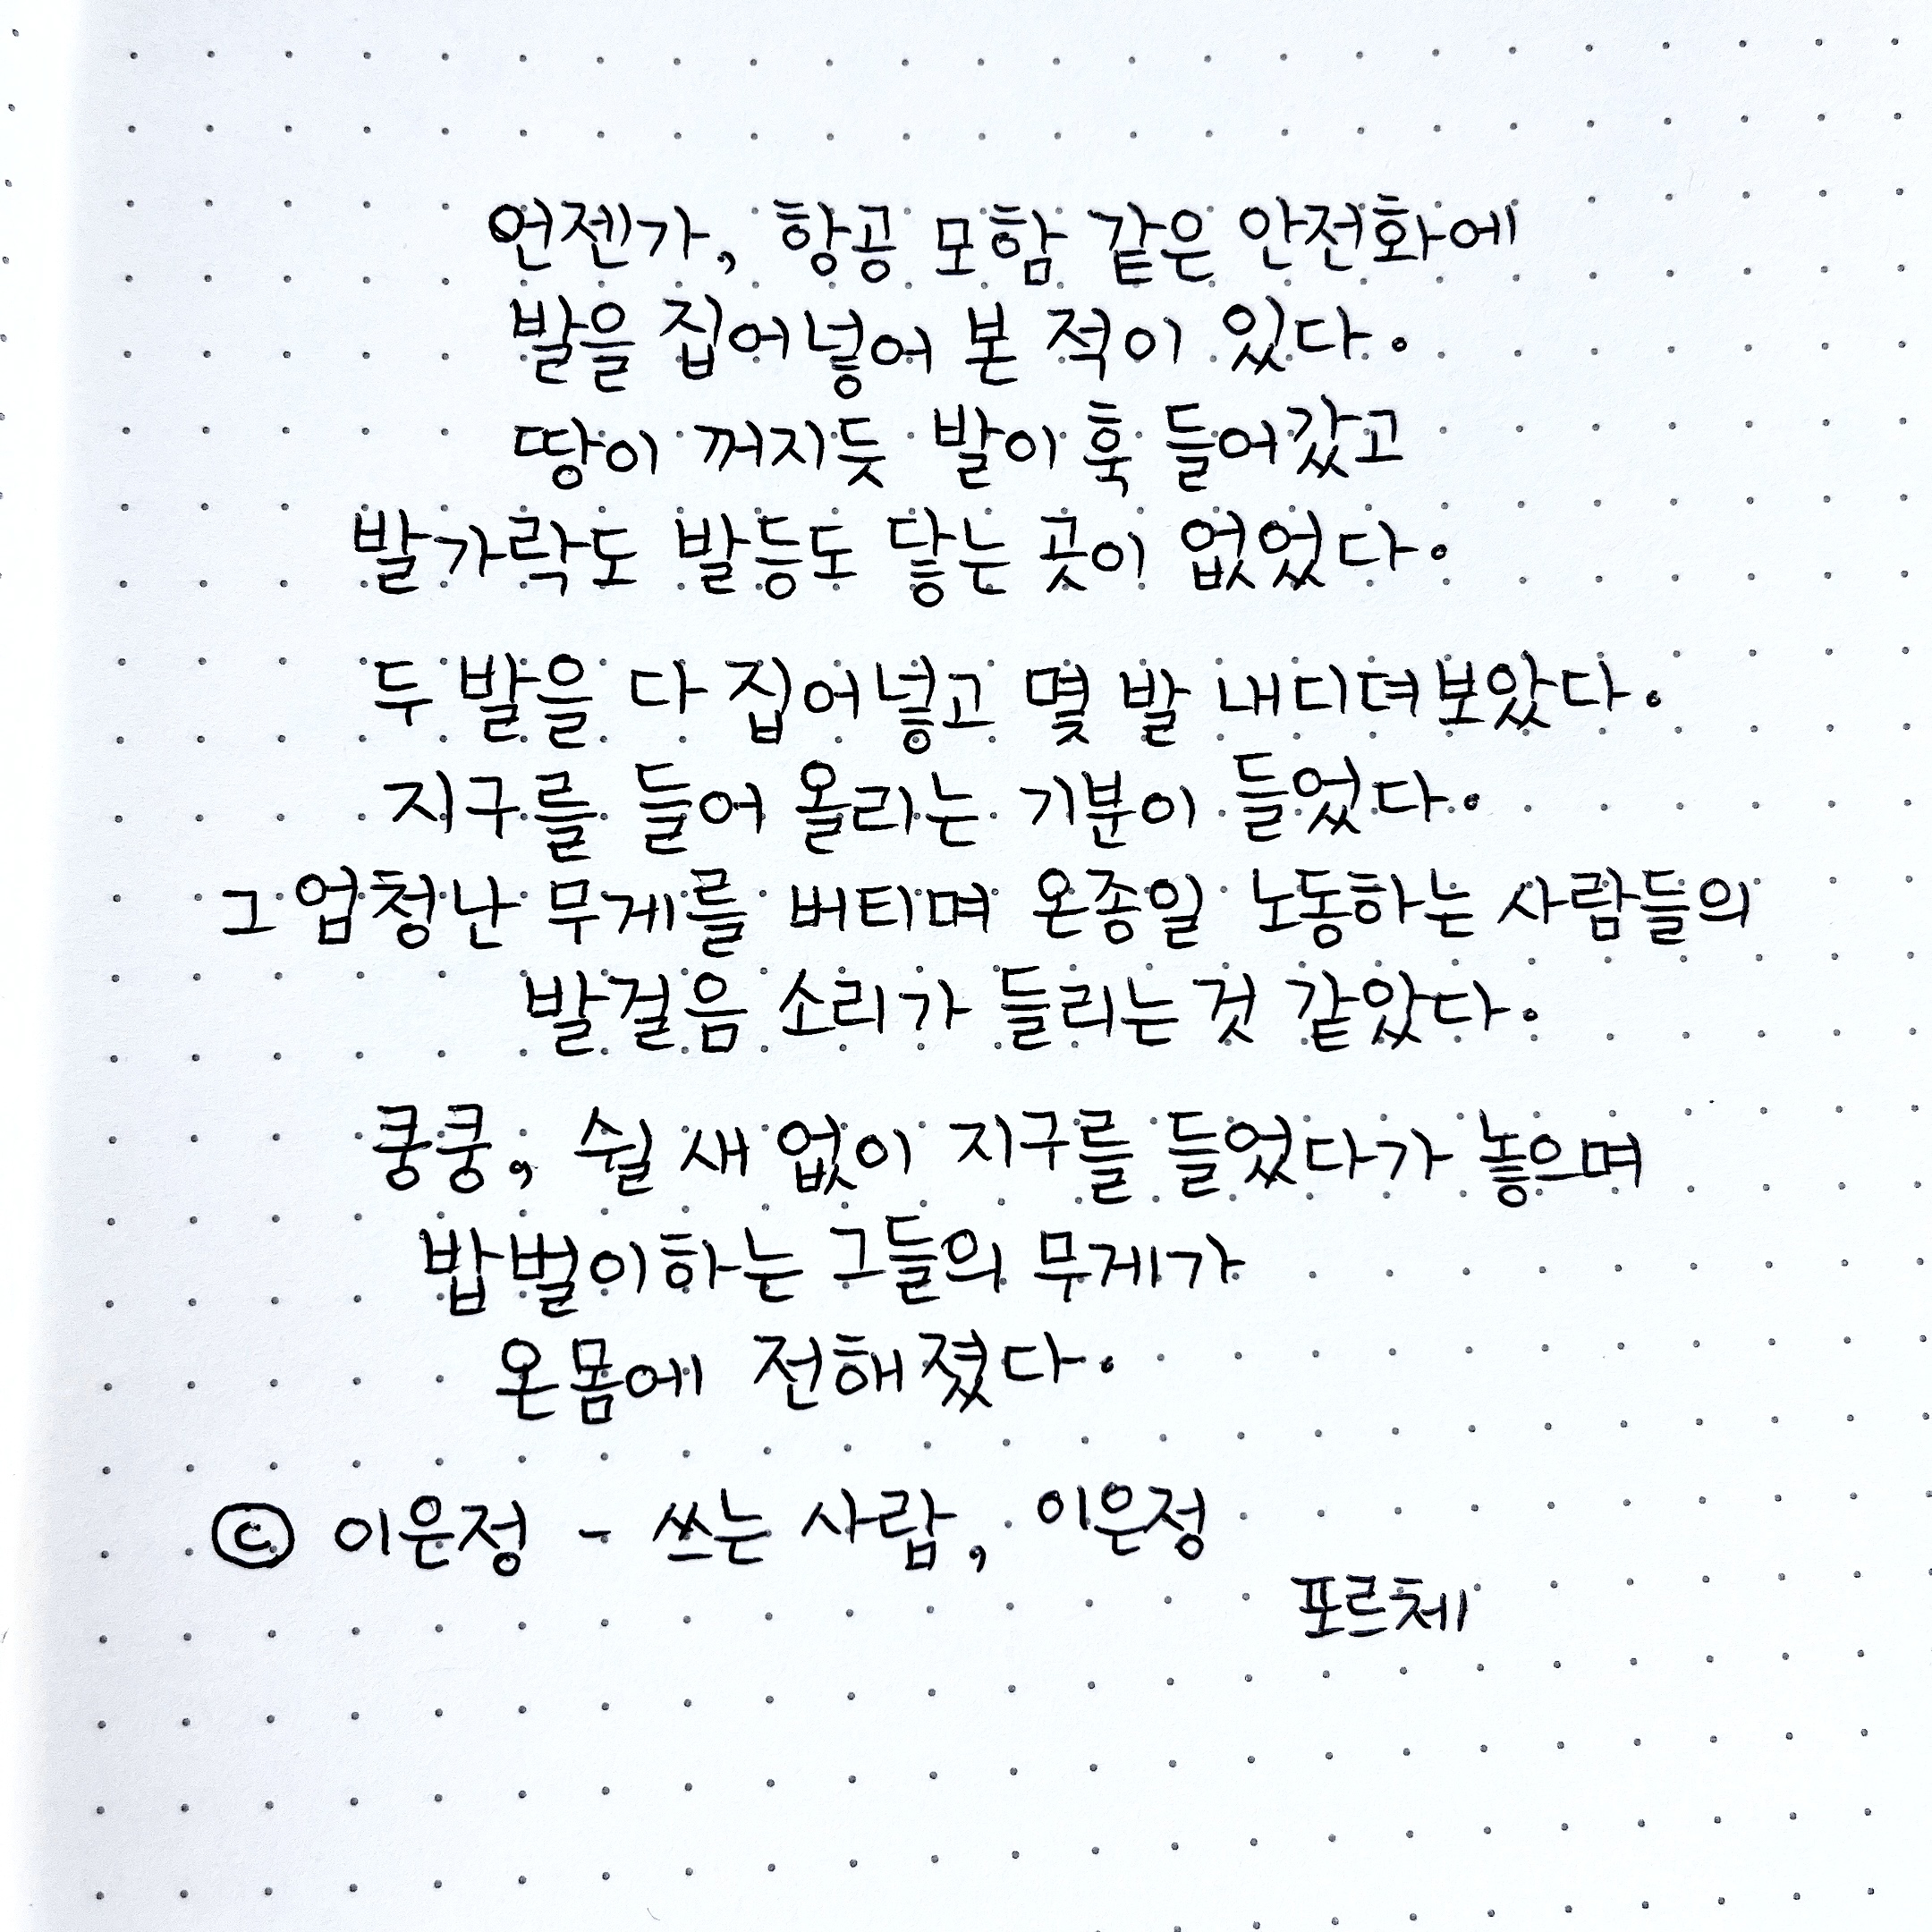 언젠가, 항공 모함 같은 안전화에
발을 집어넣어 본 적이 있다.
땅이 꺼지듯 발이 훅 들어갔고
발가락도 발등도 닿는 곳이 없었다.
두 발을 다 집어넣고 몇 발 내디뎌보았다.
지구를 들어 올리는 기분이 들었다.
그 엄청난 무게를 버티며 온종일 노동하는 사람들의
발걸음 소리가 들리는 것 같았다.
쿵쿵, 쉴 새 없이 지구를 들었다가 놓으며
밥벌이하는 그들의 무게가
온몸에 전해졌다.
© 이은정 - 쓰는 사람, 이은정
포르체